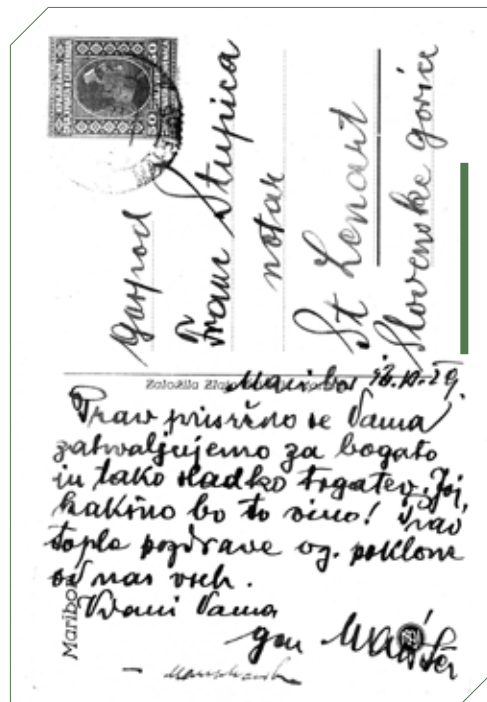 Gospod
Franc Stupica
notar
St Lenart
Slovenske gorice
Založila Zlata
Maribor
Prav prisrčno se Vama
zahvaljujemo za bogato
in tako sladko trgatev. Joj,
kakšno bo to vino! Prav
tople pozdrave oz. poklone
od nas vseh.
Vdani Vama
gen Maister
Maribor